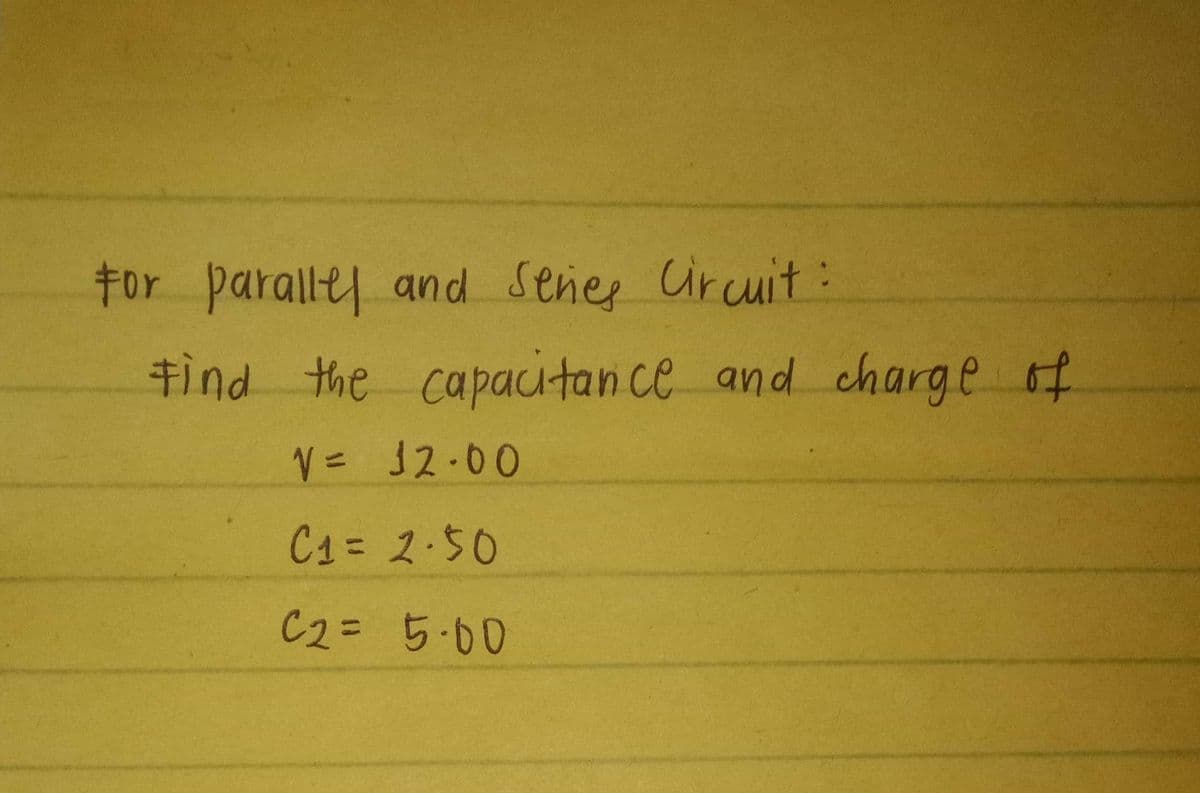 For parallel and series circuit:
Find the capacitance and charge of
V = 12.00
C1 = 2.50
C2 = 5.00